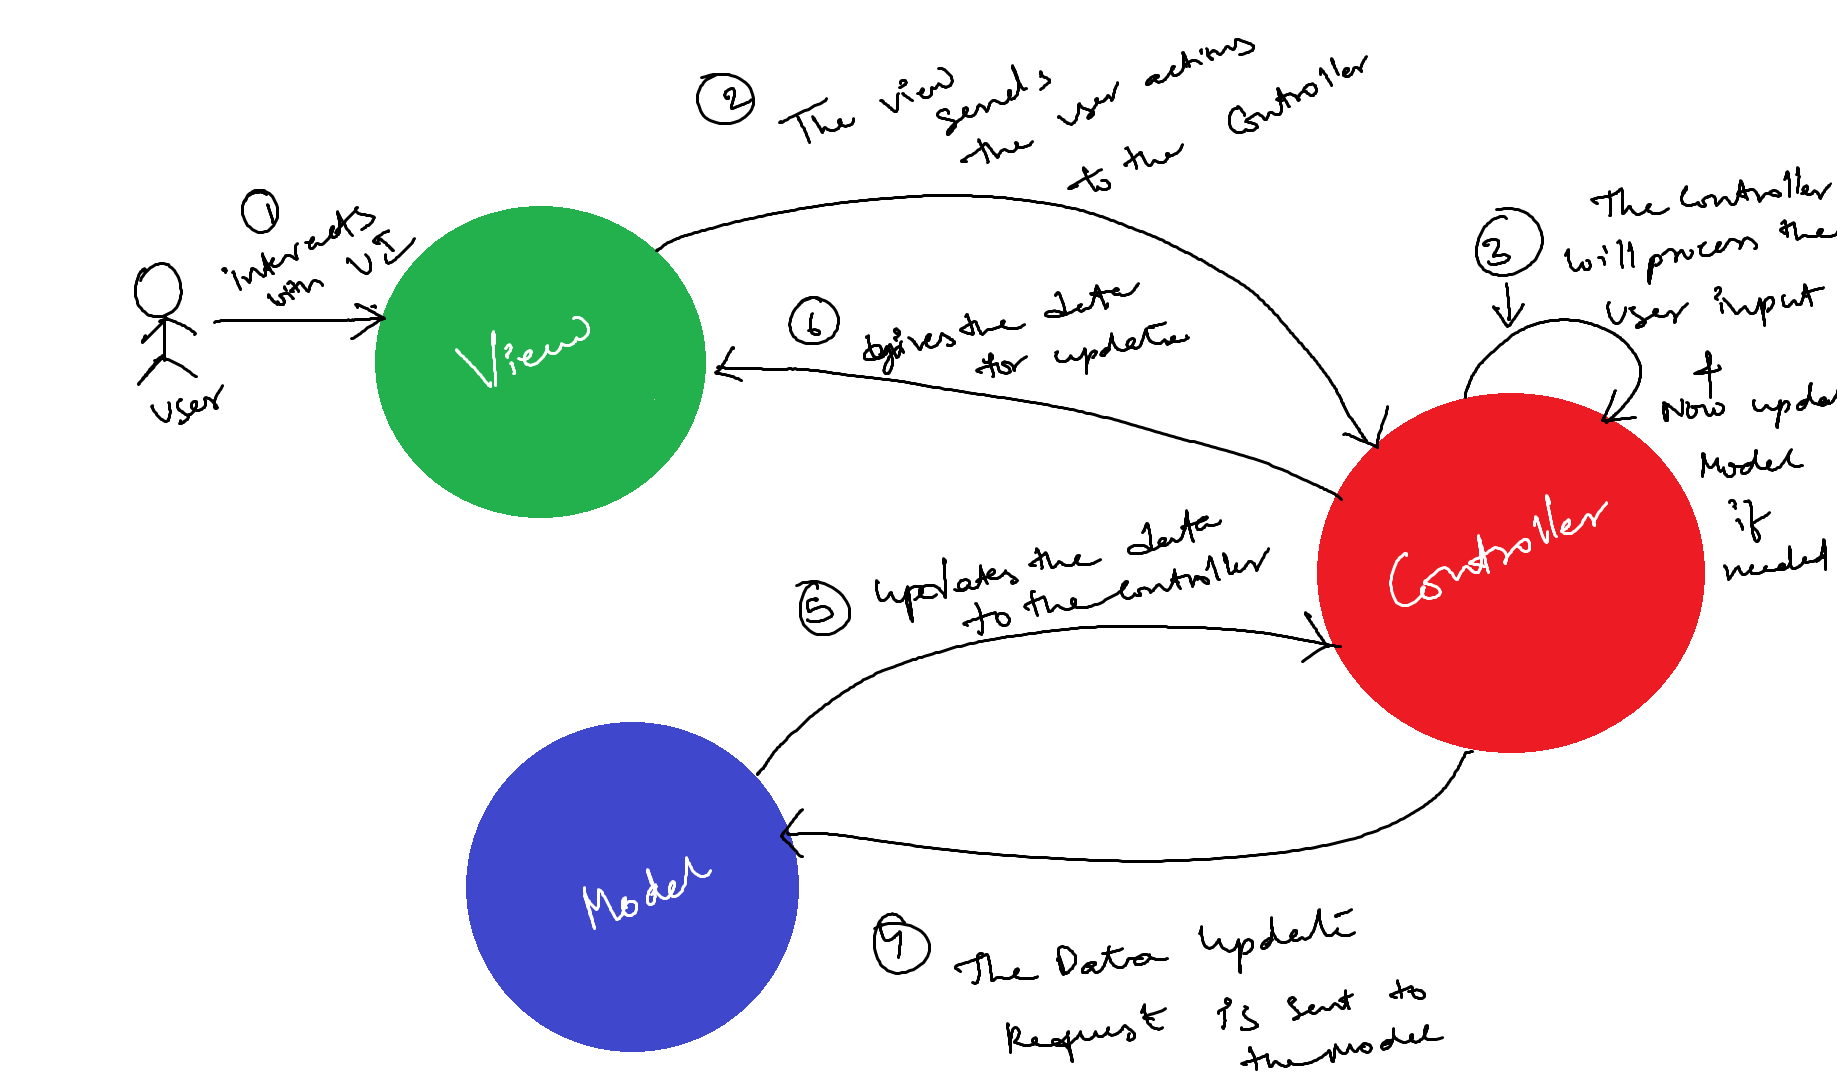 1
interacts
with UI
user
View
2
The view
sends
the user actions
to the Controller
3
The Controller
will process the
user input
Now upda
Model
if
needed
6
gives the data
for update
Controller
5
updates the data
to the controller
Model
4
The Data update
Request is sent to
the Model